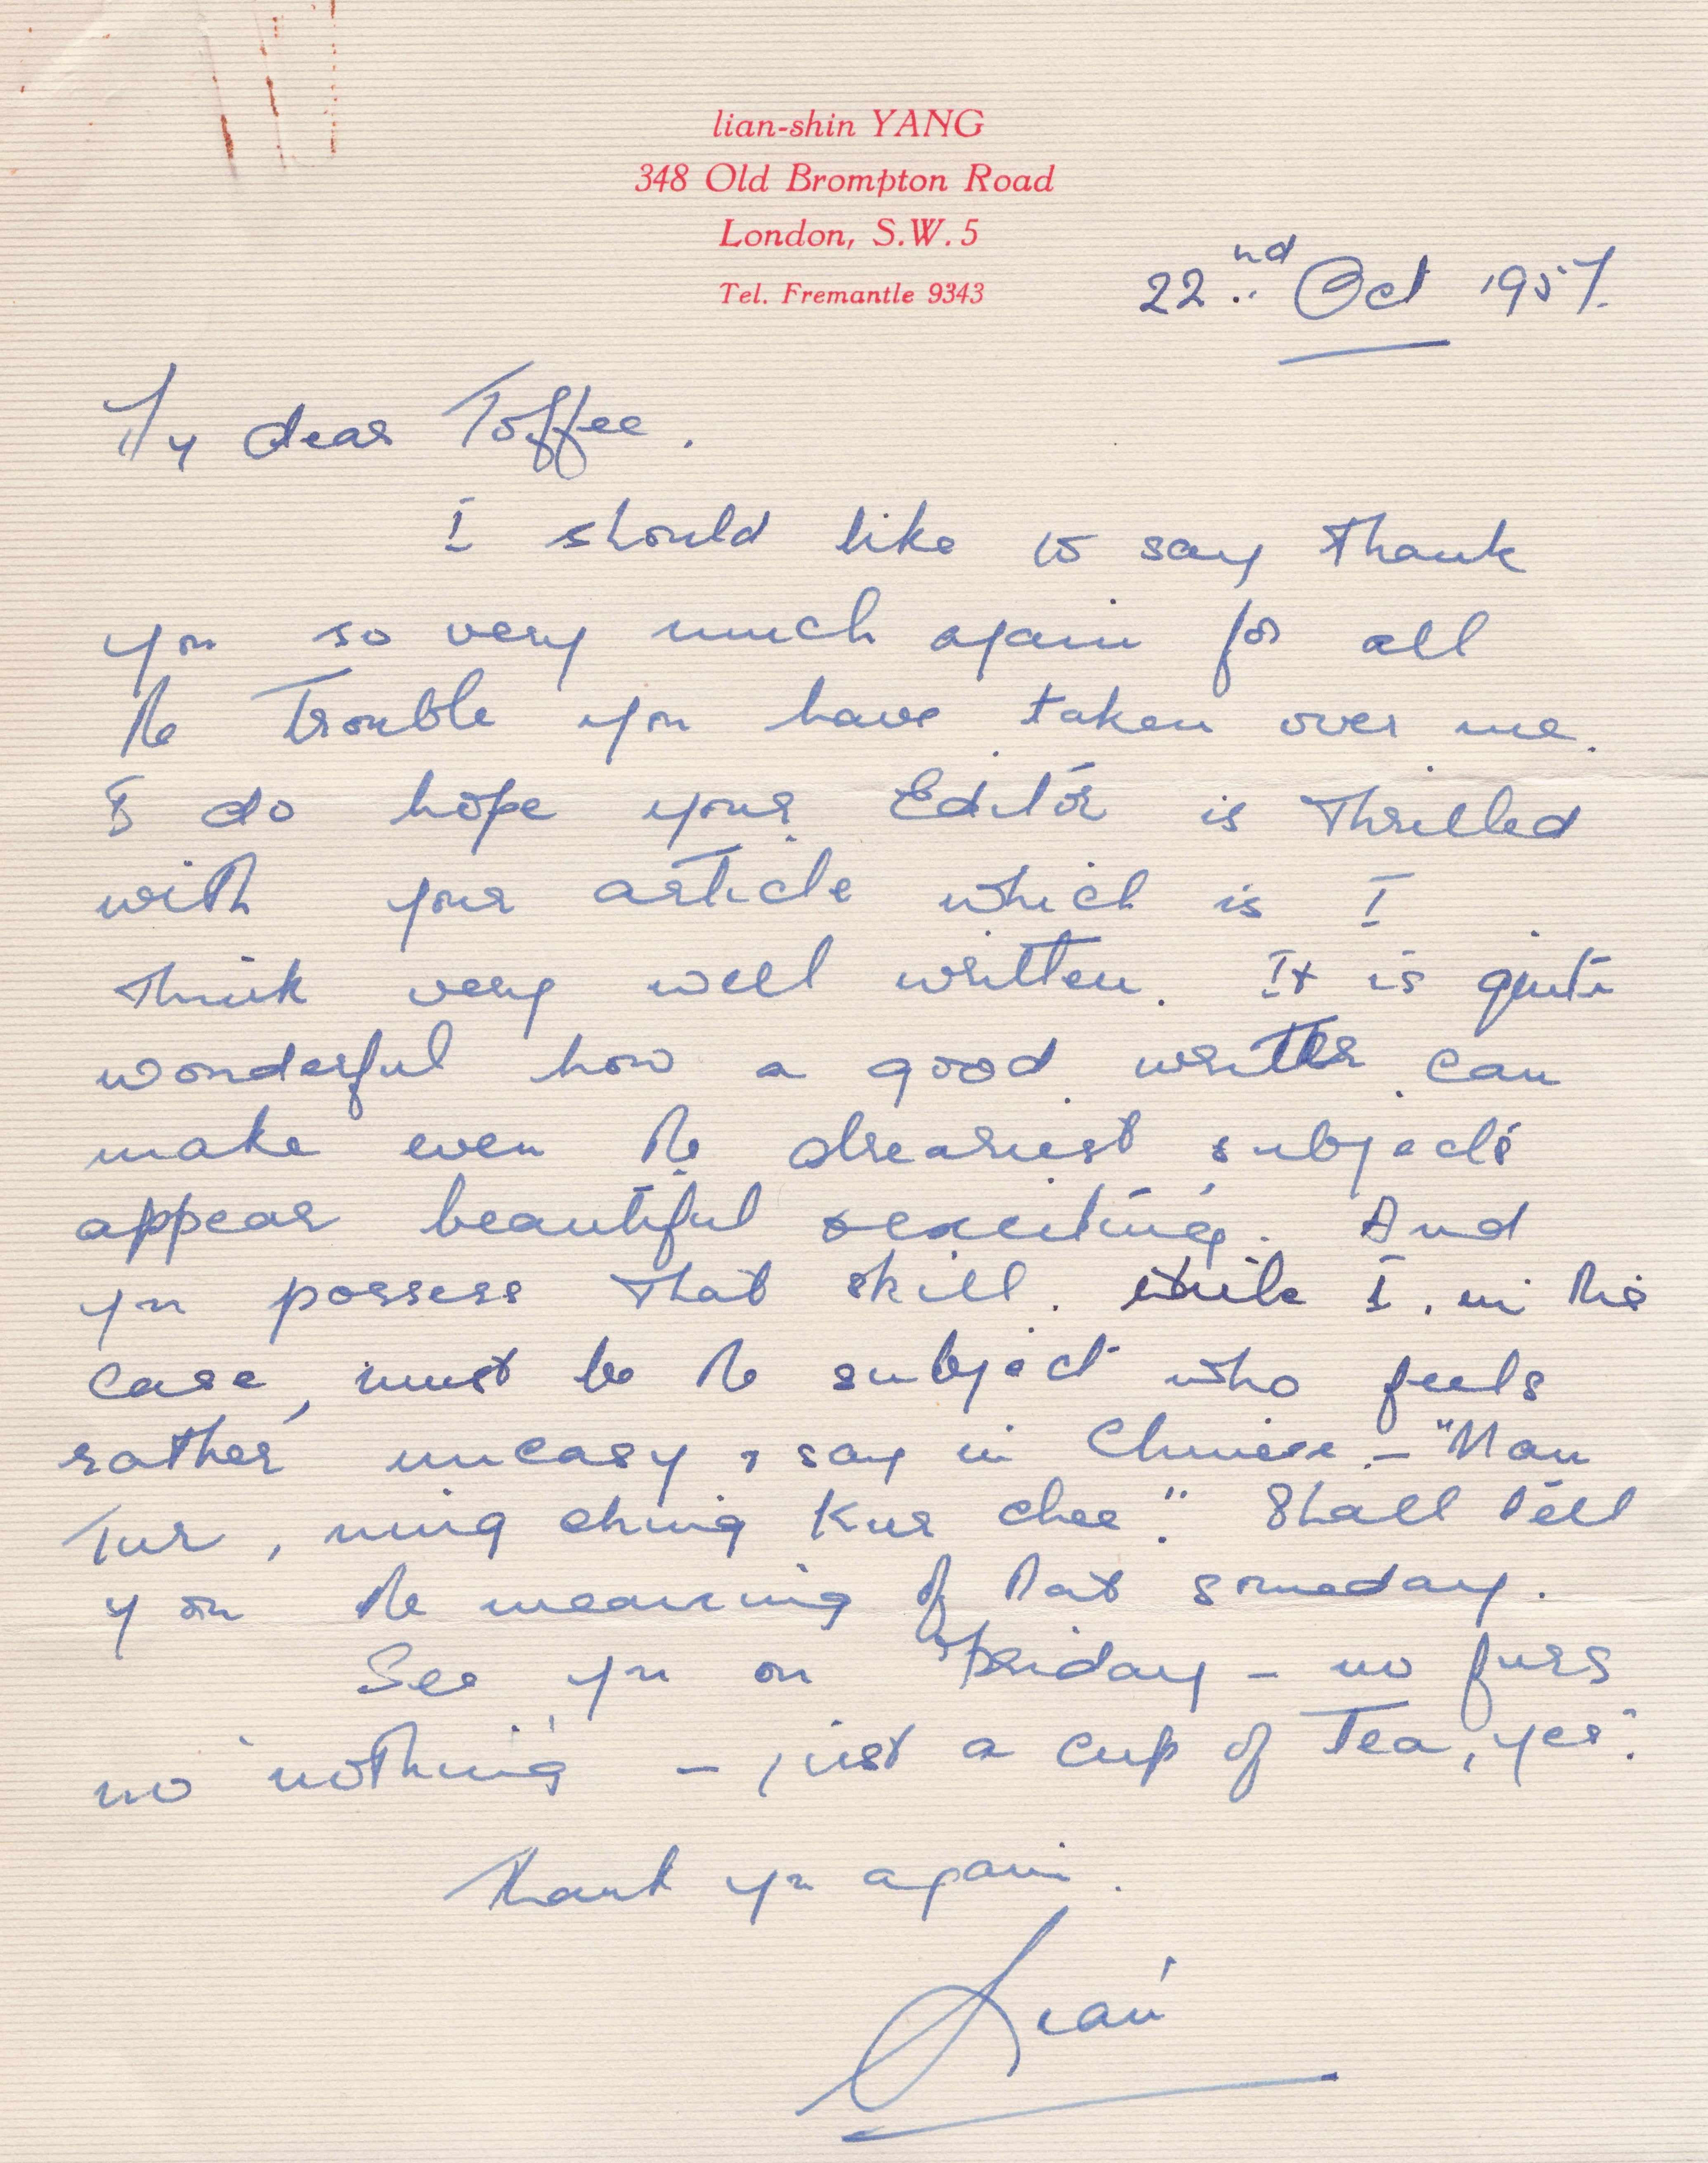 lian-shin YANG
348 Old Brompton Road
London, S.W.5
Tel. Fremantle 9343
22nd Oct 1957.
My dear Toffee.
I should like to say thank
you so very much again for all
the trouble you have taken over me.
I do hope your Editor is thrilled
with your article which is I
think very well written. It is quite
wonderful how a good writer can
make even the dreariest subjects
appear beautiful & exciting. And
you possess that skill. While I, in this
case, must be the subject who feels
rather uneasy & say in Chinese – "Nan
Tur, ning ching Kur chee". Shall tell
you the meaning of that someday.
See you on Friday – no fuss
no nothing – just a cup of Tea, yes?
Thank you again.
Lian